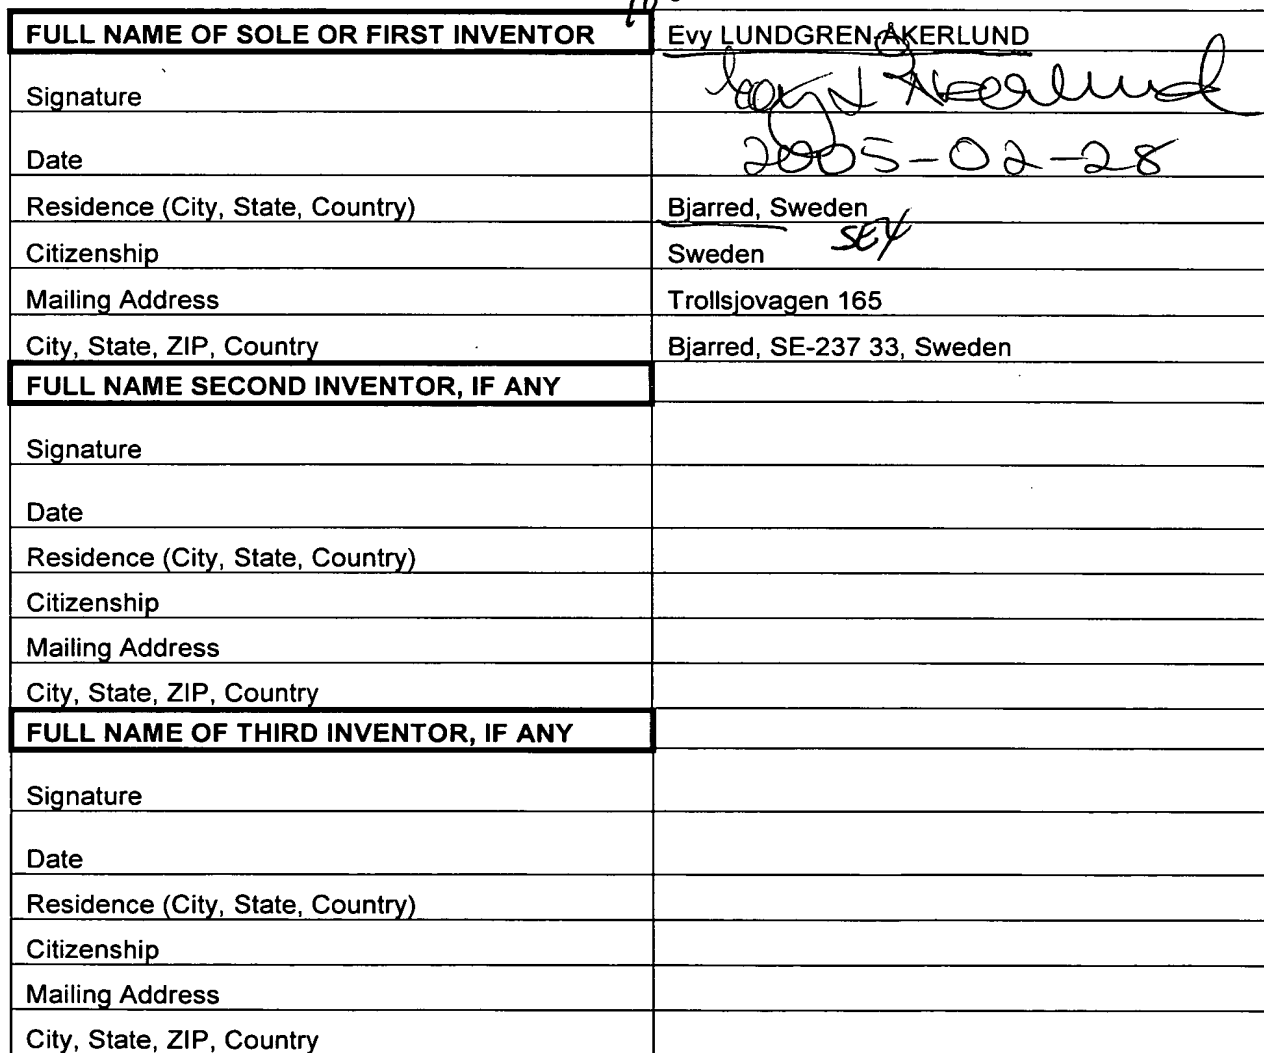 FULL NAME OF SOLE OR FIRST INVENTOR Evy LUNDGREN-ÅKERLUND
Signature
Date 2005-02-28
Residence (City, State, Country) Bjarred, Sweden
Citizenship Sweden
Mailing Address Trollsjovagen 165
City, State, ZIP, Country Bjarred, SE-237 33, Sweden
FULL NAME SECOND INVENTOR, IF ANY
Signature
Date
Residence (City, State, Country)
Citizenship
Mailing Address
City, State, ZIP, Country
FULL NAME OF THIRD INVENTOR, IF ANY
Signature
Date
Residence (City, State, Country)
Citizenship
Mailing Address
City, State, ZIP, Country